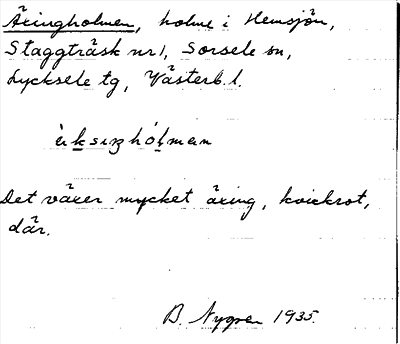 Äxingholmen, holme i Hemsjön,
Staggträsk nr 1, Sorsele sn,
Lycksele tg, Västerb. l.
ä̀ksıŋhól̥mαn
Det växer mycket äxing, kvickrot,
där.
B. Nygren 1935.